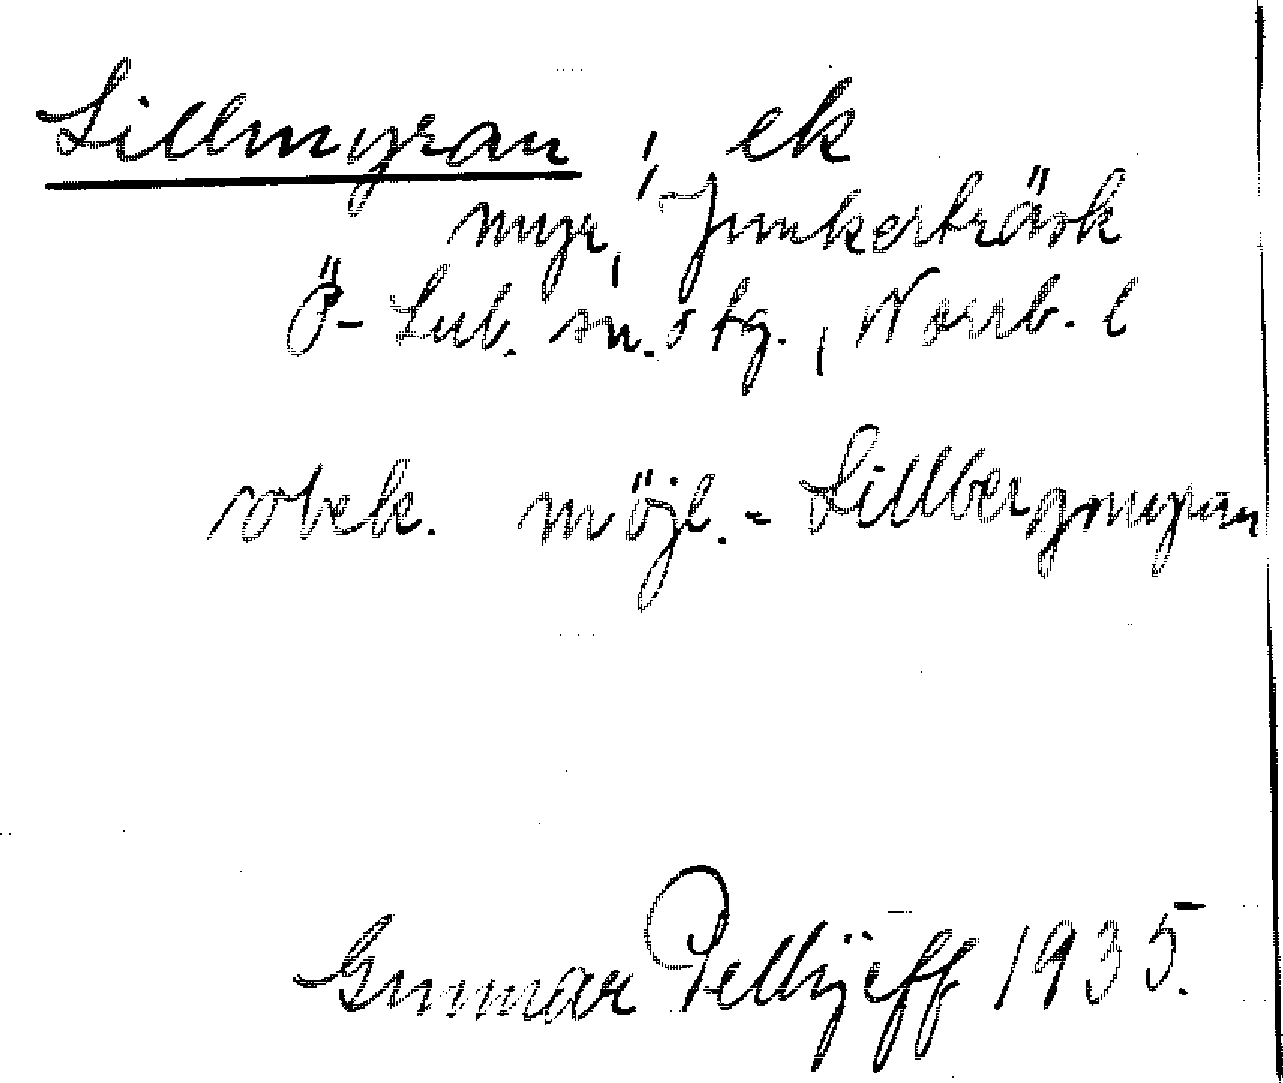 Lillmyran, ek
myr, Junkerträsk
Ö-Lul. sn. o tg., Norrb. l
obek. möjl. = Lillbergmyran
Gunnar Pellijeff 1935.